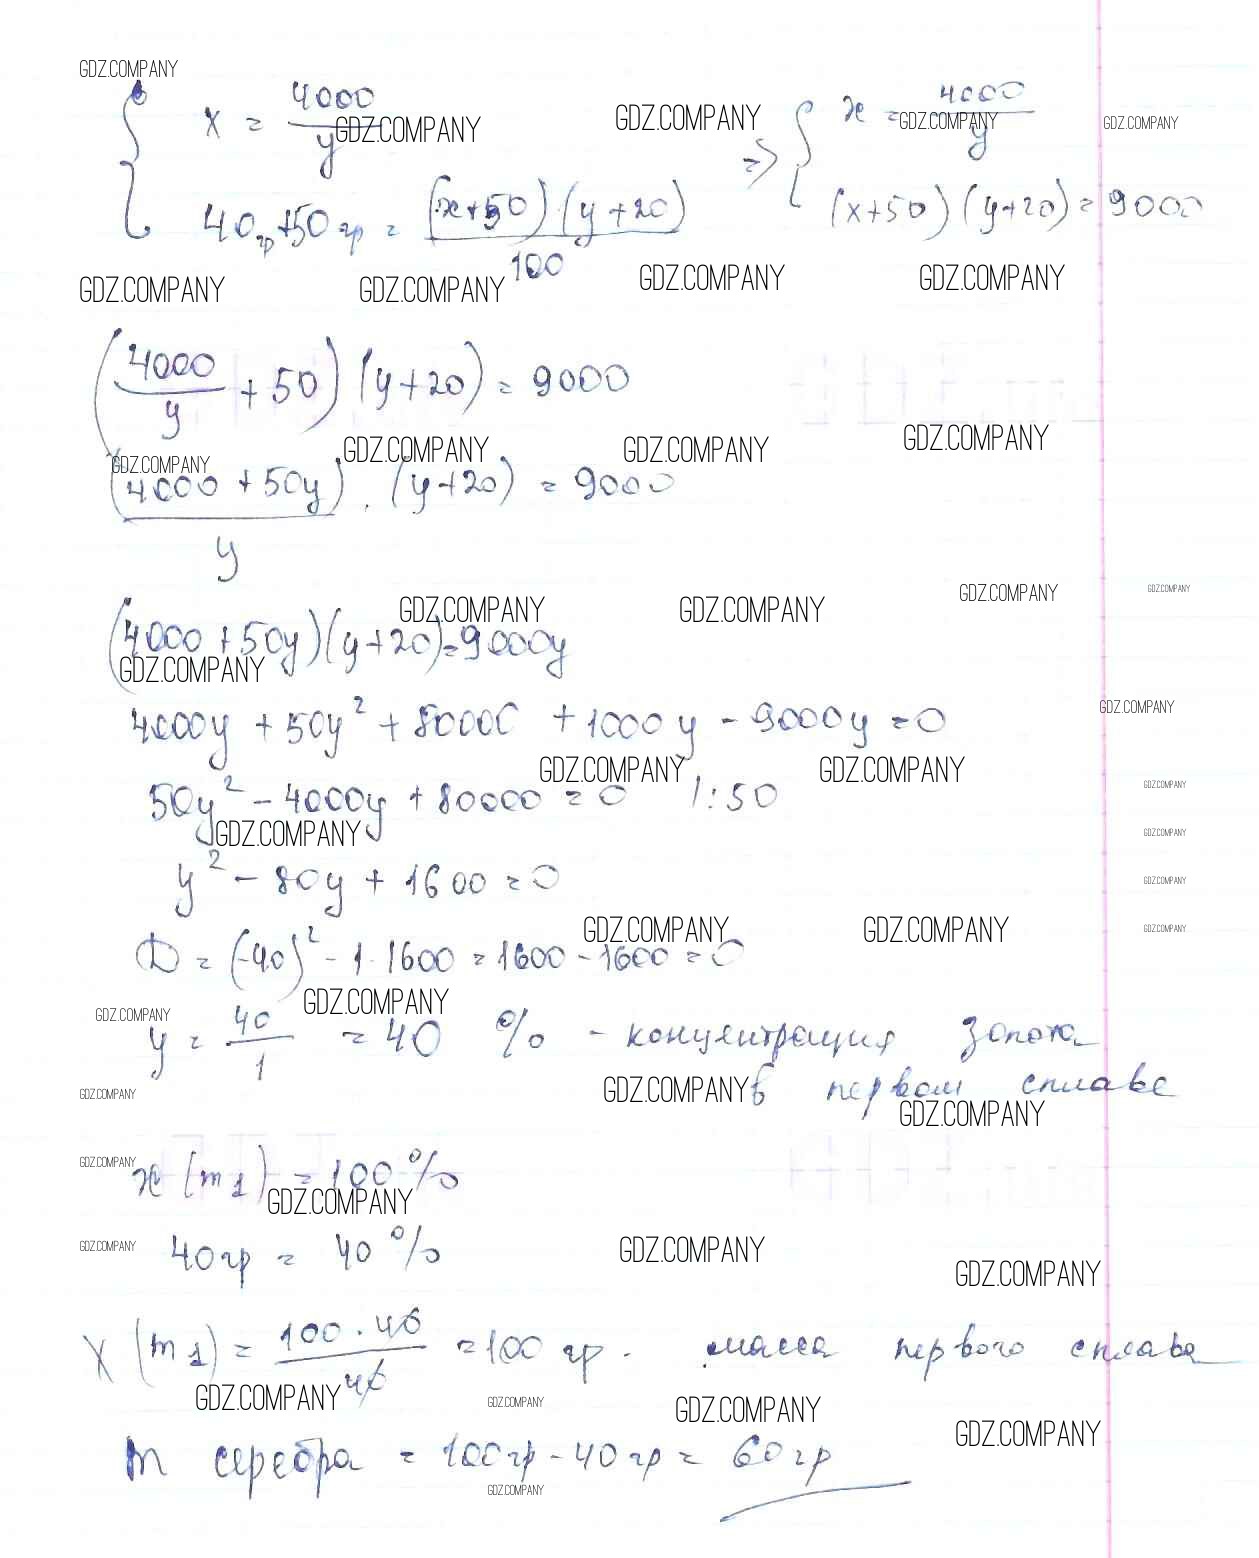 GDZ.COMPANY
x = 4000/y => { x = 4000/y
40гр+50гр = (x+50)·(y+20)/100 (x+50)(y+20)=9000
GDZ.COMPANY GDZ.COMPANY GDZ.COMPANY GDZ.COMPANY
GDZ.COMPANY GDZ.COMPANY GDZ.COMPANY GDZ.COMPANY
(4000/y + 50)(y+20) = 9000
GDZ.COMPANY GDZ.COMPANY GDZ.COMPANY GDZ.COMPANY
(4000 + 50y)/y · (y+20) = 9000
GDZ.COMPANY GDZ.COMPANY GDZ.COMPANY GDZ.COMPANY
(4000+50y)(y+20)=9000y
GDZ.COMPANY GDZ.COMPANY
4000y + 50y² + 80000 + 1000y - 9000y = 0
GDZ.COMPANY GDZ.COMPANY GDZ.COMPANY
50y² - 4000y + 80000 = 0 /:50
GDZ.COMPANY GDZ.COMPANY
y² - 80y + 1600 = 0
GDZ.COMPANY
GDZ.COMPANY GDZ.COMPANY GDZ.COMPANY
D = (-40)² - 1·1600 = 1600 - 1600 = 0
GDZ.COMPANY GDZ.COMPANY
y = 40/1 = 40 % - концентрация золота
GDZ.COMPANY GDZ.COMPANY в первом сплаве
GDZ.COMPANY
GDZ.COMPANY
x (m1) = 100 %
GDZ.COMPANY
GDZ.COMPANY GDZ.COMPANY GDZ.COMPANY
40гр = 40 %
x (m1) = 100·40/40 = 100 гр. масса первого сплава
GDZ.COMPANY GDZ.COMPANY GDZ.COMPANY GDZ.COMPANY
m серебра = 100гр - 40гр = 60гр
GDZ.COMPANY